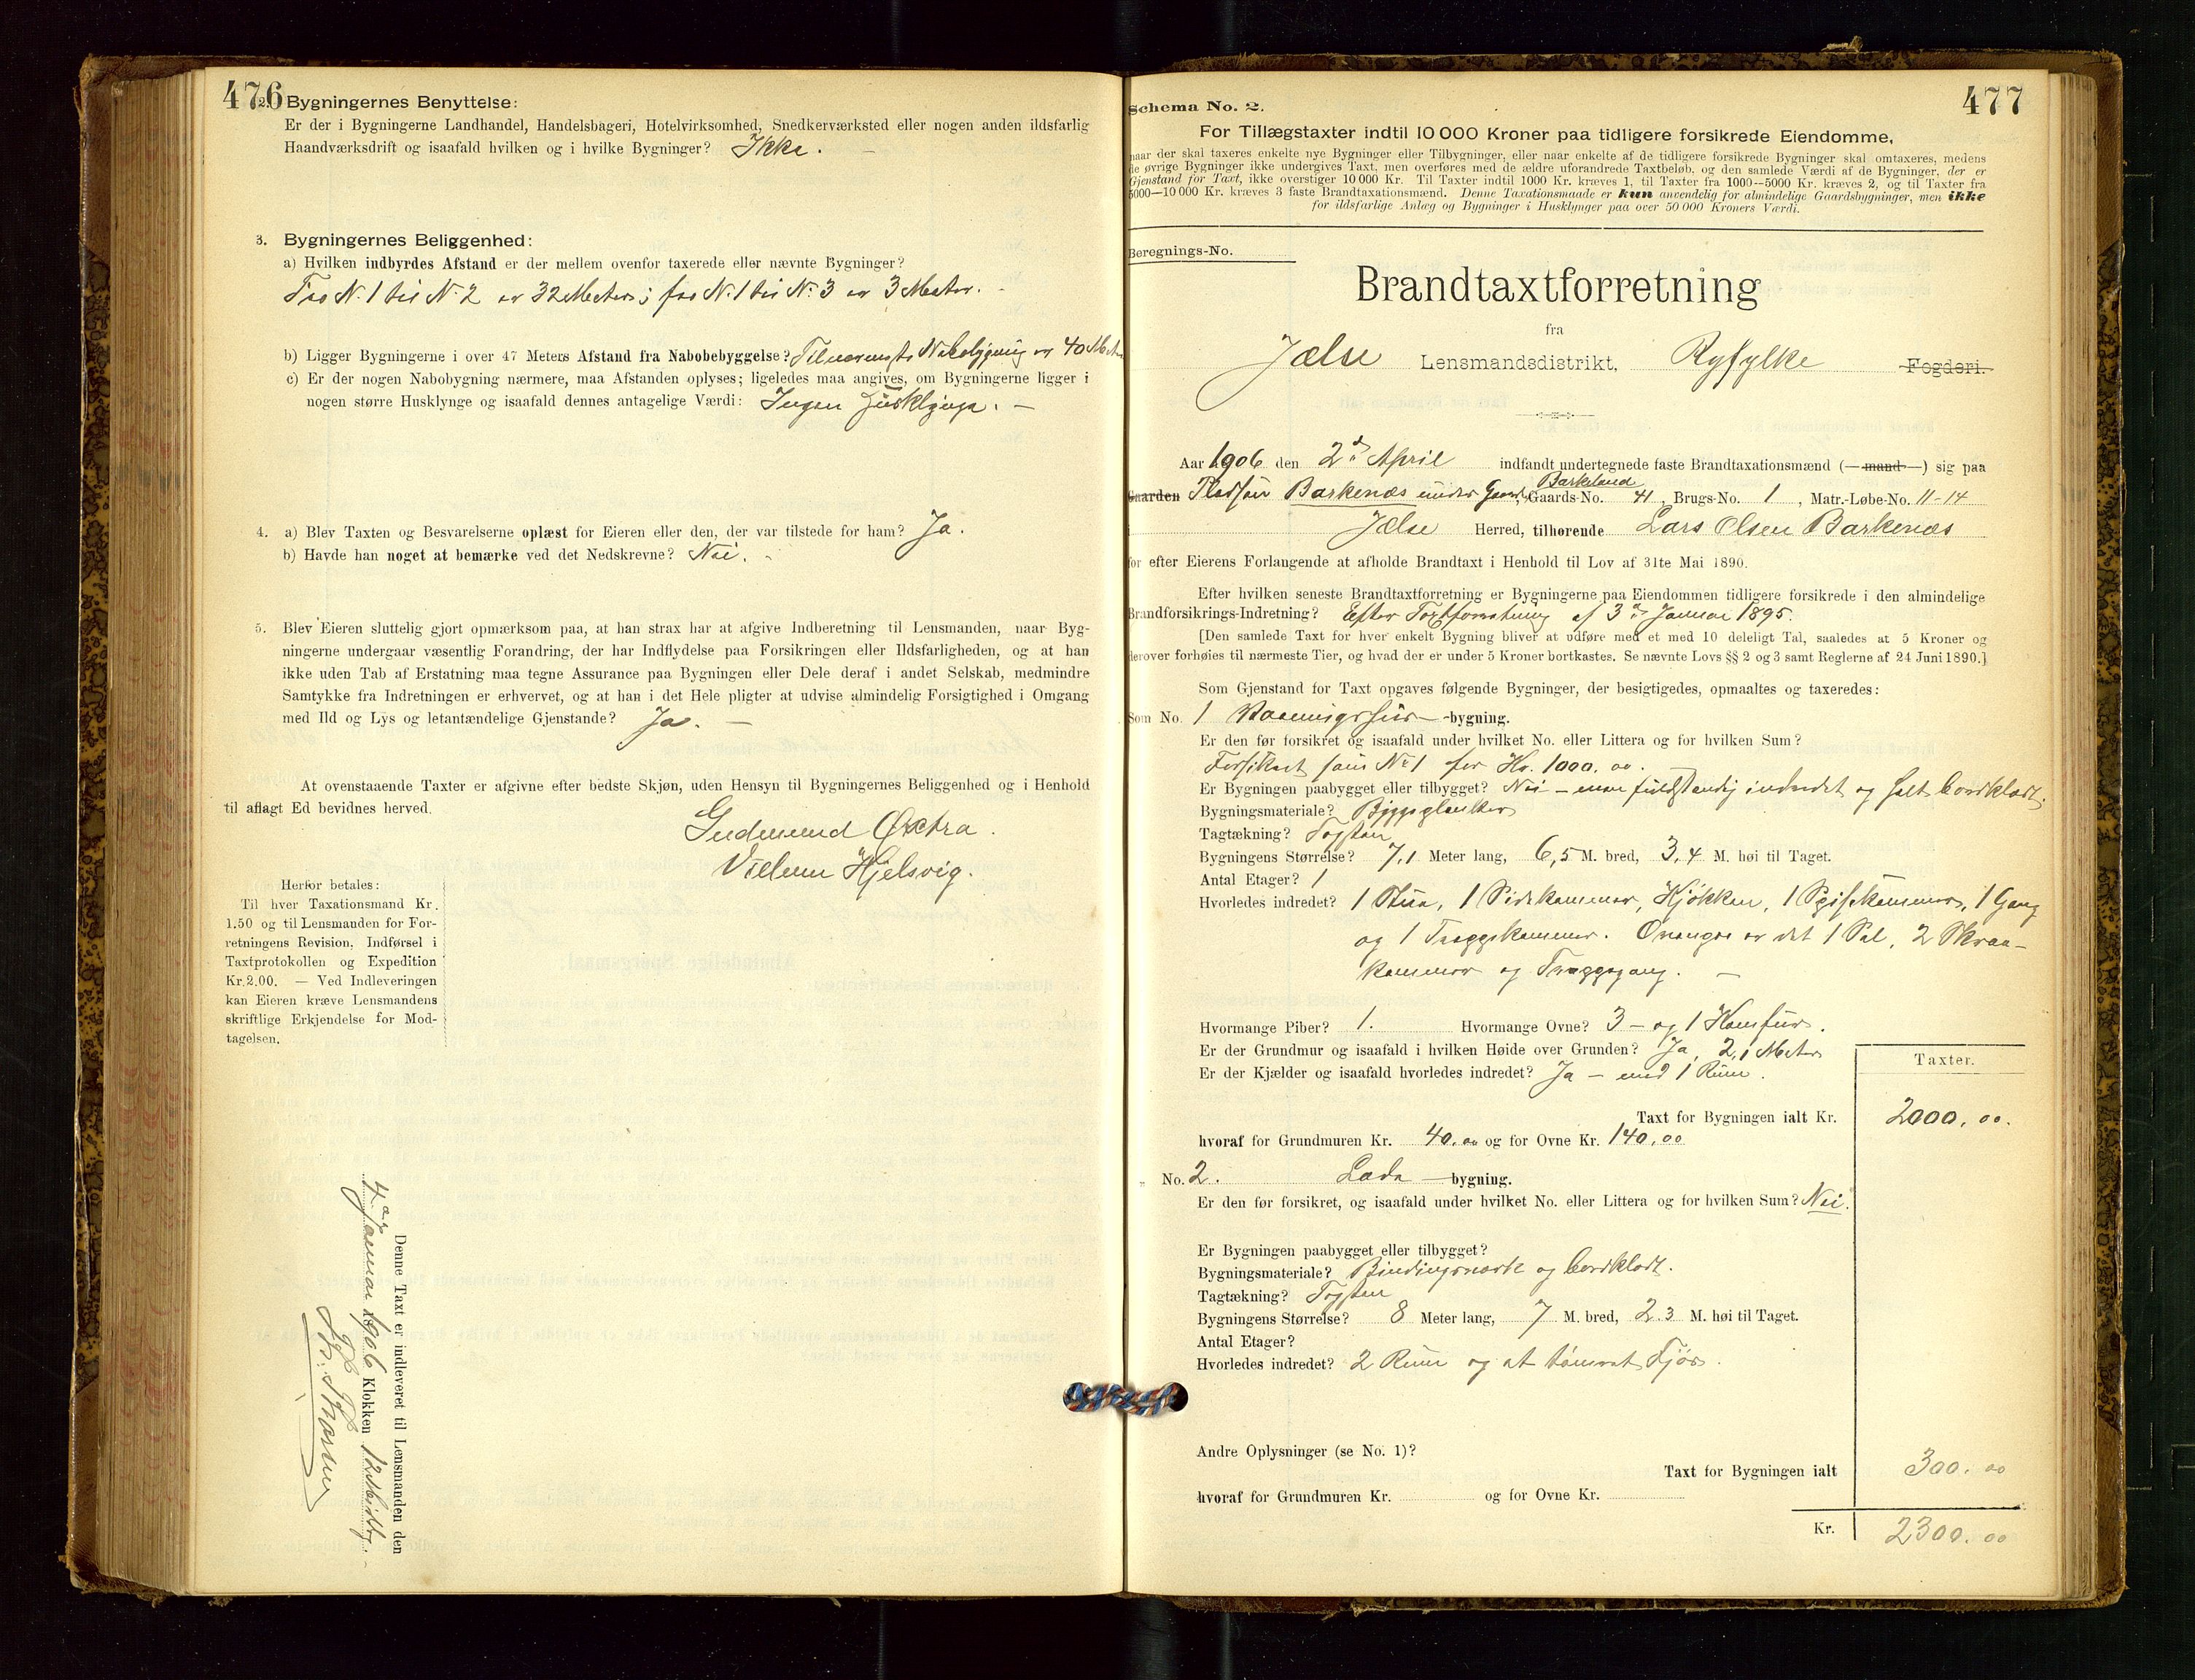 476
2. Bygningernes Benyttelse:
Er der i Bygningerne Landhandel, Handelsbageri, Hotelvirksomhed, Snedkerværksted eller nogen anden ildsfarlig
Haandværksdrift og isaafald hvilken og i hvilke Bygninger? Ikke. –
3. Bygningernes Beliggenhed:
a) Hvilken indbyrdes Afstand er der mellem ovenfor taxerede eller nævnte Bygninger?
Fra N. 1 til N. 2 er 32 Meter; fra N. 1 til N. 3 er 3 Meter. –
b) Ligger Bygningerne i over 47 Meters Afstand fra Nabobebyggelse? Til nærmeste Nabobygning er 40 Meter
c) Er der nogen Nabobygning nærmere, maa Afstanden oplyses; ligeledes maa angives, om Bygningerne ligger i
nogen større Husklynge og isaafald dennes antagelige Værdi: Ingen Husklynge. –
4. a) Blev Taxten og Besvarelserne oplæst for Eieren eller den, der var tilstede for ham? Ja.
b) Havde han noget at bemærke ved det Nedskrevne? Nei. –
5. Blev Eieren sluttelig gjort opmærksom paa, at han strax har at afgive Indberetning til Lensmanden, naar Byg-
ningerne undergaar væsentlig Forandring, der har Indflydelse paa Forsikringen eller Ildsfarligheden, og at han
ikke uden Tab af Erstatning maa tegne Assurance paa Bygningen eller Dele deraf i andet Selskab, medmindre
Samtykke fra Indretningen er erhvervet, og at han i det Hele pligter at udvise almindelig Forsigtighed i Omgang
med Ild og Lys og letantændelige Gjenstande? Ja. –
At ovenstaaende Taxter er afgivne efter bedste Skjøn, uden Hensyn til Bygningernes Beliggenhed og i Henhold
til aflagt Ed bevidnes herved.
Gudmund Øxtra.
Vilhelm Hjelsvig.
Herfor betales:
Til hver Taxationsmand Kr.
1.50 og til Lensmanden for For-
retningens Revision, Indførsel i
Taxtprotokollen og Expedition
Kr. 2.00. — Ved Indleveringen
kan Eieren kræve Lensmandens
skriftlige Erkjendelse for Mod-
tagelsen.
Denne Taxt er indleveret til Lensmanden den
4de Januar 1906 Klokken 12 Middag. –
477
Schema No. 2.
For Tillægstaxter indtil 10 000 Kroner paa tidligere forsikrede Eiendomme,
naar der skal taxeres enkelte nye Bygninger eller Tilbygninger, eller naar enkelte af de tidligere forsikrede Bygninger skal omtaxeres, medens
de øvrige Bygninger ikke undergives Taxt, men overføres med de ældre uforandrede Taxtbeløb, og den samlede Værdi af de Bygninger, der er
Gjenstand for Taxt, ikke overstiger 10 000 Kr. Til Taxter indtil 1000 Kr. kræves 1, til Taxter fra 1000—5000 Kr. kræves 2, og til Taxter fra
5000—10 000 Kr. kræves 3 faste Brandtaxationsmænd. Denne Taxationsmaade er kun anvendelig for almindelige Gaardsbygninger, men ikke
for ildsfarlige Anlæg og Bygninger i Husklynger paa over 50 000 Kroners Værdi.
Beregnings-No.
Brandtaxtforretning
fra
Jælse Lensmandsdistrikt, Ryfylke Fogderi.
Aar 1906 den 2den April indfandt undertegnede faste Brandtaxationsmænd (—mand—) sig paa
Barkeland
Gaarden Pladsen Barkenæs under Gaard, Gaards-No. 41, Brugs-No. 1, Matr.-Løbe-No. 11-14
i Jælse Herred, tilhørende Lars Olsen Barkenæs
for efter Eierens Forlangende at afholde Brandtaxt i Henhold til Lov af 31te Mai 1890.
Efter hvilken seneste Brandtaxtforretning er Bygningerne paa Eiendommen tidligere forsikrede i den almindelige
Brandforsikrings-Indretning? Efter Taxtforretning af 3de Januar 1895.
[Den samlede Taxt for hver enkelt Bygning bliver at udføre med et med 10 deleligt Tal, saaledes at 5 Kroner og
derover forhøies til nærmeste Tier, og hvad der er under 5 Kroner bortkastes. Se nævnte Lovs §§ 2 og 3 samt Reglerne af 24 Juni 1890.]
Som Gjenstand for Taxt opgaves følgende Bygninger, der besigtigedes, opmaaltes og taxeredes:
Som No. 1 Vaaningshus- -bygning.
Er den før forsikret og isaafald under hvilket No. eller Littera og for hvilken Sum?
Forsikret som No 1 for Kr. 1000.00. –
Er Bygningen paabygget eller tilbygget? Nei – men fuldstændig indredet og helt bordklædt.
Bygningsmateriale? Byggeplanker
Tagtækning? Tagsten
Bygningens Størrelse? 7,1 Meter lang, 6,5 M. bred, 3,4 M. høi til Taget.
Antal Etager? 1
Hvorledes indredet? 1 Stue, 1 Sidekammer, Kjøkken, 1 Spisekammer, 1 Gang
og 1 Trappekammer. Ovenpaa er det 1 Sal, 2 Skraa-
kammer og Trappegang. –
Hvormange Piber? 1. Hvormange Ovne? 3 – og 1 Komfur.
Er der Grundmur og isaafald i hvilken Høide over Grunden? Ja, 2,1 Meter
Er der Kjælder og isaafald hvorledes indredet? Ja – med 1 Rum.
Taxter.
Taxt for Bygningen ialt Kr. 2000.00.
hvoraf for Grundmuren Kr. 40.00 og for Ovne Kr. 140.00
„ No. 2. Lade —bygning.
Er den før forsikret, og isaafald under hvilket No. eller Littera og for hvilken Sum? Nei.
Er Bygningen paabygget eller tilbygget?
Bygningsmateriale? Bindingsværk og bordklædt.
Tagtækning? Tagsten
Bygningens Størrelse? 8 Meter lang, 7 M. bred, 2.3 M. høi til Taget.
Antal Etager?
Hvorledes indredet? 2 Rum og et tømret Fjøs.
Andre Oplysninger (se No. 1)?
Taxt for Bygningen ialt 300.00
hvoraf for Grundmuren Kr. og for Ovne Kr.
Kr. 2300.00